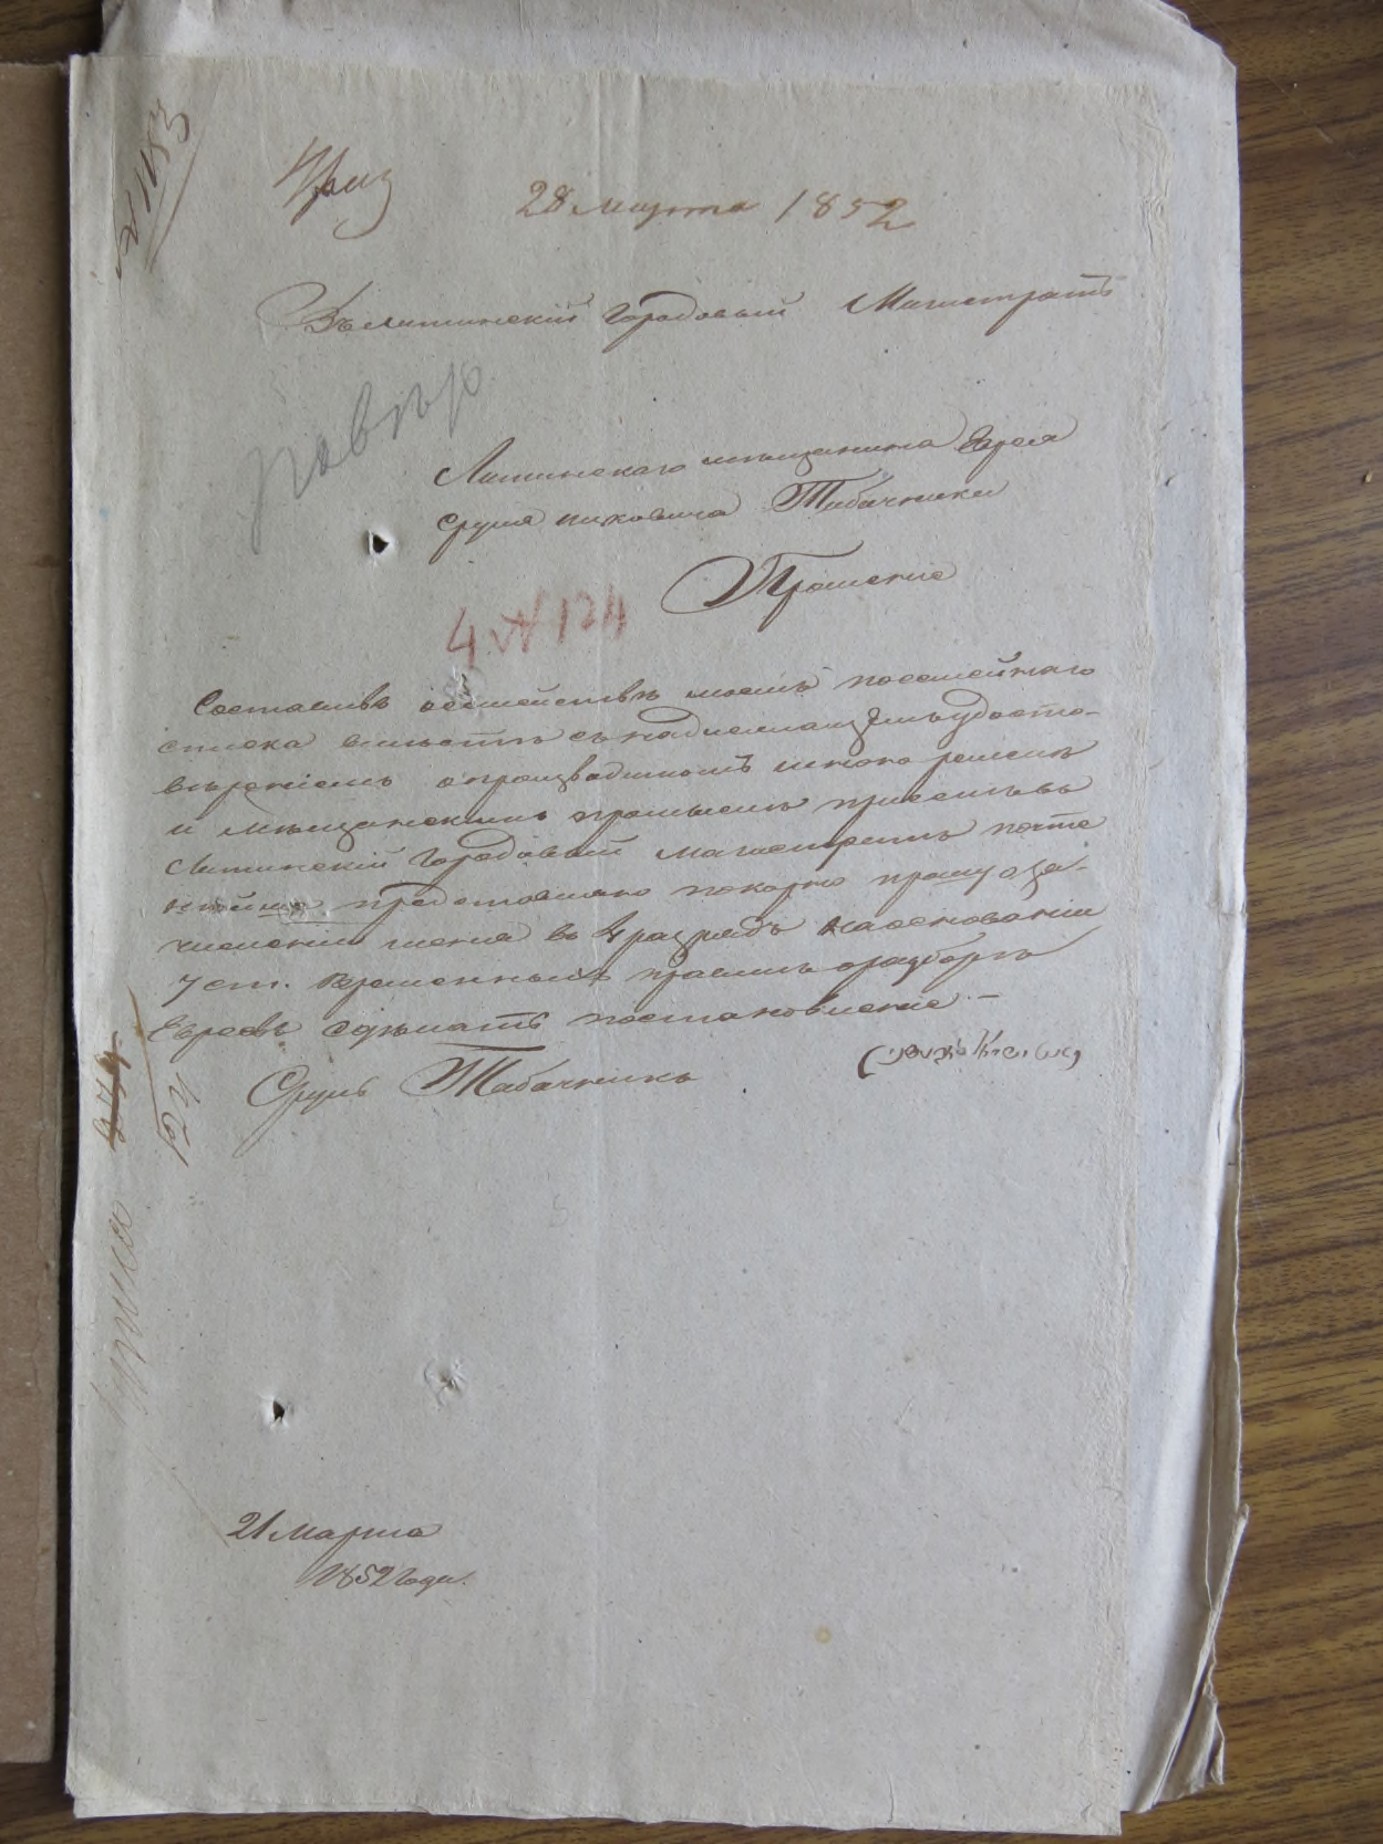 № 1183
28 Марта 1852
Въ Литинскій Городовый Магистратъ
повѣр
Литинскаго мѣщанина Еврея
Сруля Ицковича Табачника
Прошеніе
4 № 124
Составивъ о семействѣ моемъ посемейнаго
списка вмѣстѣ съ надлежащимъ удосто-
вѣреніемъ о производимомъ мною
и мѣщанскимъ промысл при семъ въ
Литинскій Городовый Магистратъ почте
ннѣйше представляю покорно прошу о за-
численіи меня въ 4 разрядъ на основаніи
7 ст. Временныхъ правилъ о разборѣ
Евреевъ сдѣлать постановленіе. —
Сруль Табачникъ
21 Марта
1852 года.